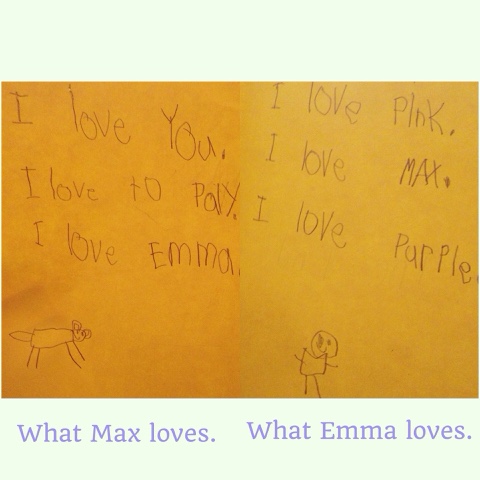 I love You.
I love to PalY.
I love Emma.
I love PInK.
I love MAX.
I love PurPle.
What Max loves.
What Emma loves.